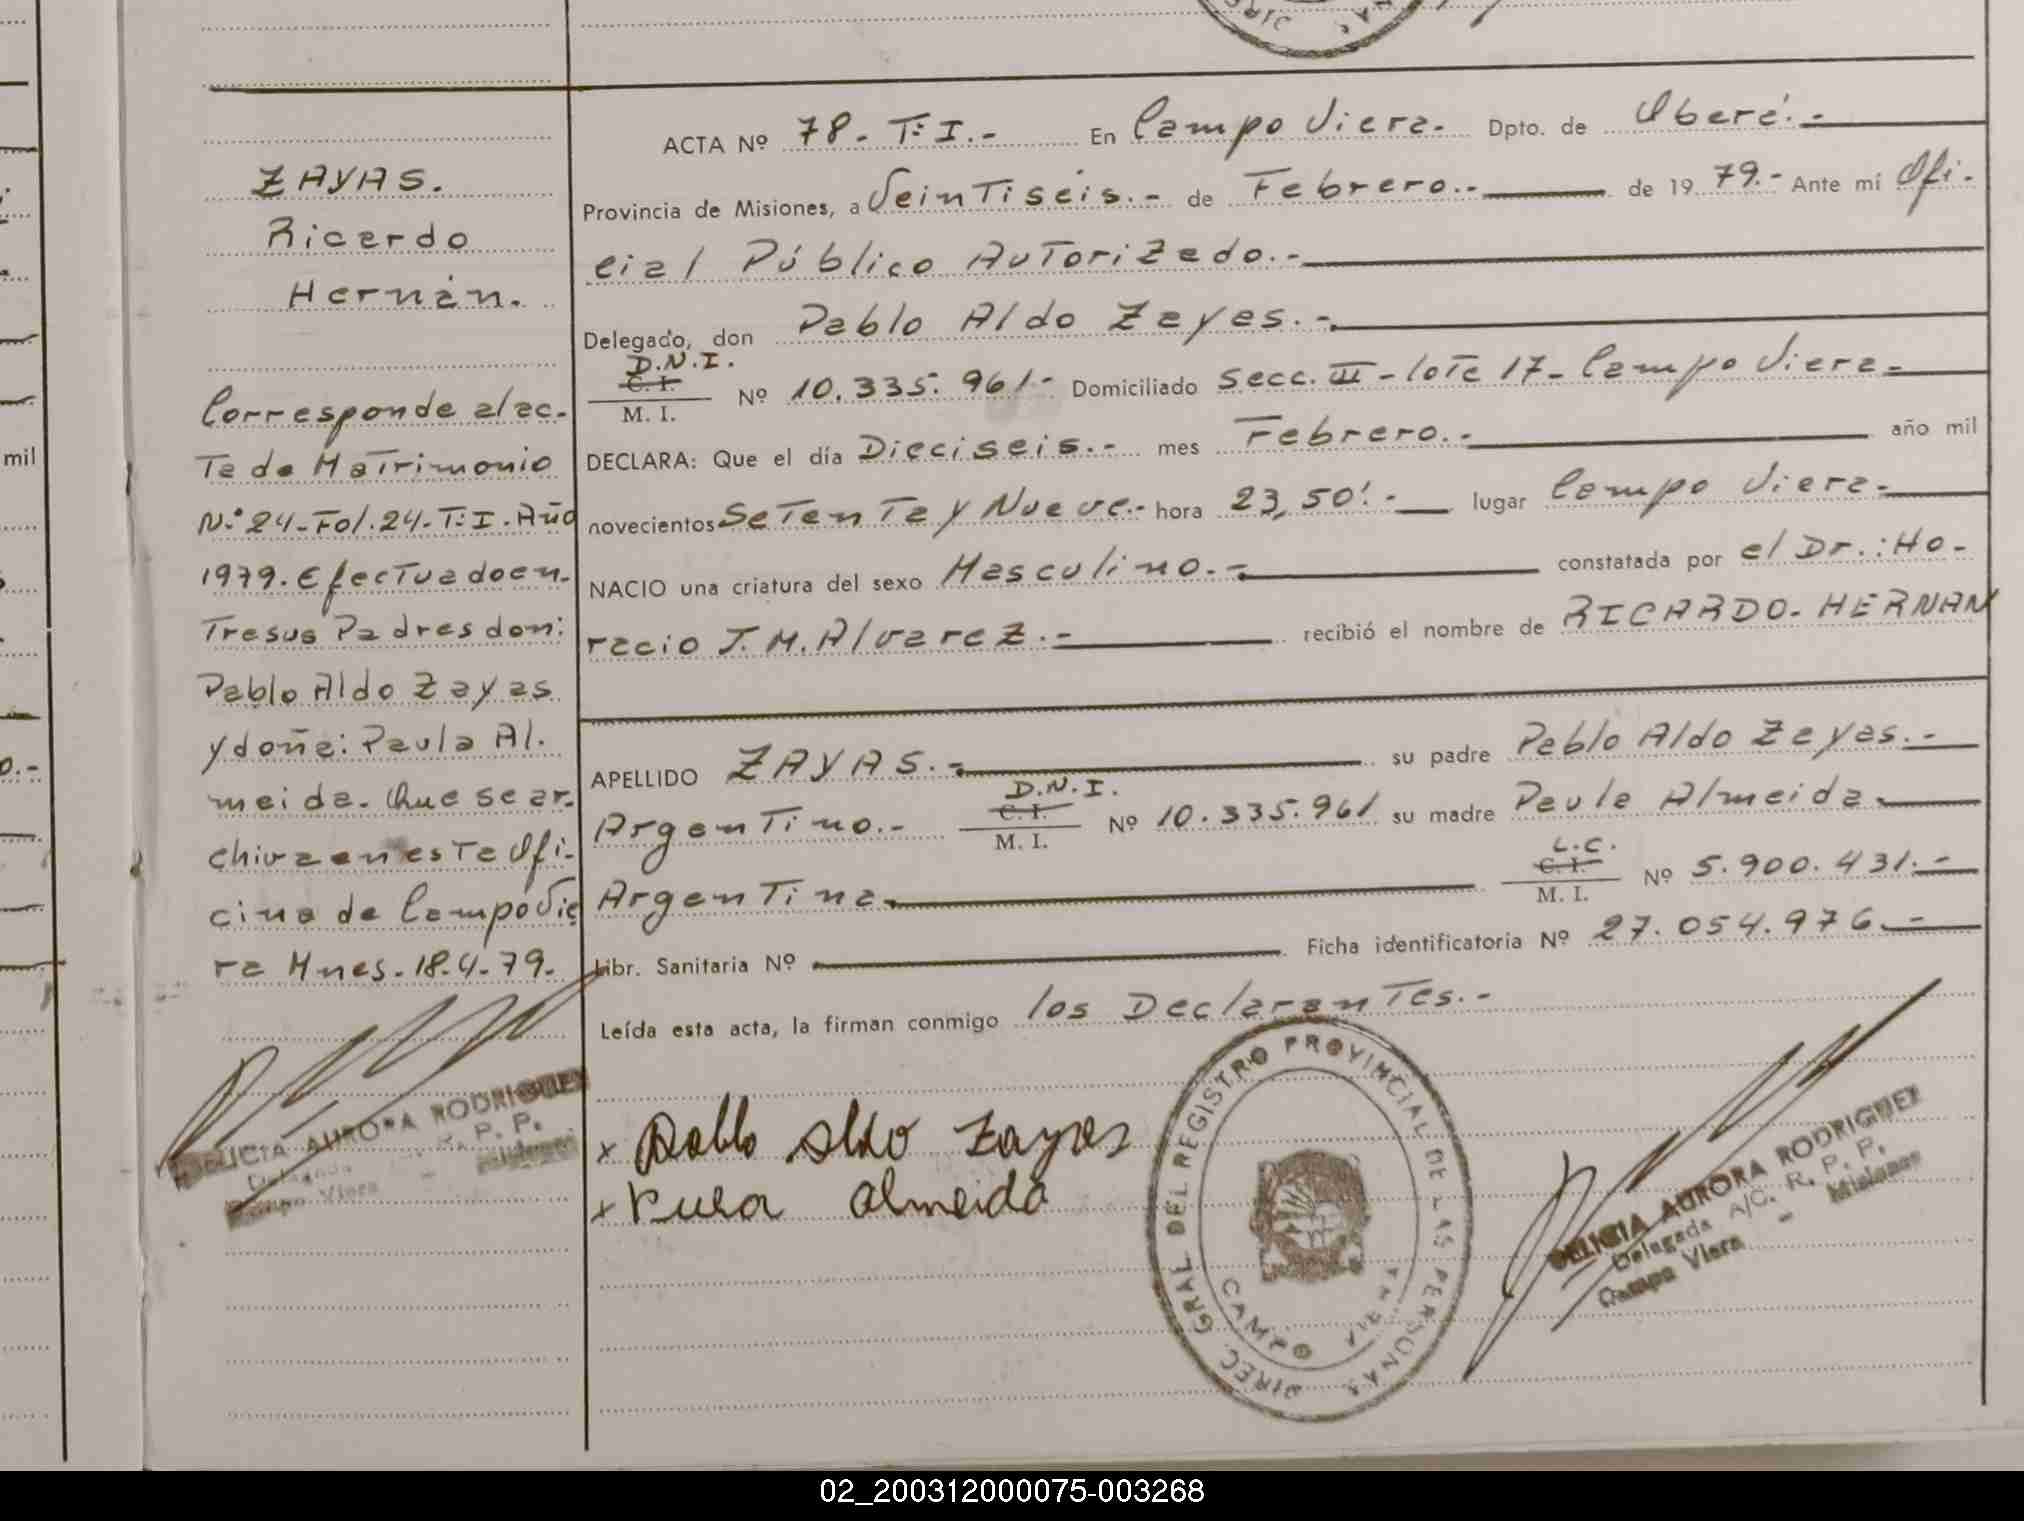 ZAYAS.
Ricardo
Hernán.
Corresponde al ac-
ta de Matrimonio
N.º 24-Fol.24-T:I.Año
1979. Efectuado en-
tre sus Padres don:
Pablo Aldo Zayas
y doña: Paula Al.
meida. Que se ar-
chiva en esta Ofi-
cina de Campo Vie
ra Mnes. 18-4-79.
AURORA RODRIGUEZ
Delegada R. P. P.
Campo Viera -
ACTA Nº 78- T:I.- En Campo Viera. Dpto. de Oberá.-
Provincia de Misiones, a Veintiséis.- de Febrero.- de 19 79.- Ante mí Ofi-
cial Público Autorizado.-
Delegado, don Pablo Aldo Zayas.-
D.N.I.
C. I.
M. I. Nº 10.335.961- Domiciliado Secc. III - lote 17- Campo Viera-
DECLARA: Que el día Dieciseis.- mes Febrero.- año mil
novecientos Setenta y Nueve.- hora 23,50'.- lugar Campo Viera-
NACIO una criatura del sexo Masculino.- constatada por el Dr.: Ho-
racio J. M. Alvarez.- recibió el nombre de RICARDO- HERNAN
APELLIDO ZAYAS.- su padre Pablo Aldo Zayas.-
Argentino.-
D.N.I.
C. I.
M. I. Nº 10.335.961 su madre Paula Almeida-
Argentina-
L.C.
C. I.
M. I. Nº 5.900.431.-
Libr. Sanitaria Nº Ficha identificatoria Nº 27.054.976.-
Leída esta acta, la firman conmigo los Declarantes.-
x Pablo Aldo Zayas
x Almeida
DIREC. GRAL DEL REGISTRO PROVINCIAL DE LAS PERSONAS
CAMPO VIERA
DELICIA AURORA RODRIGUEZ
Delegada A/C. R. P. P.
Campo Viera - Misiones
mil
02_200312000075-003268